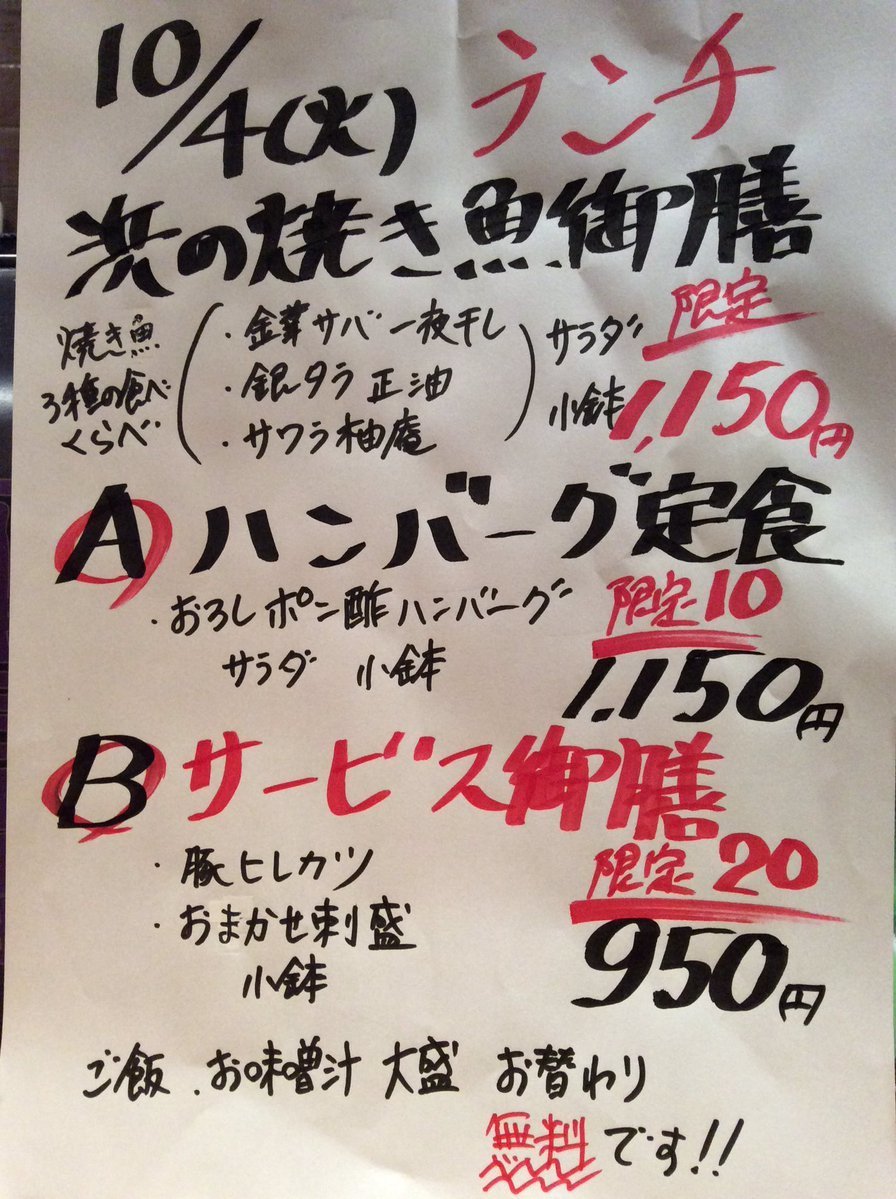 10/4(火) ランチ
浜の焼き魚御膳
焼き魚
3種の食べ
くらべ
・金華サバ一夜干し
・銀タラ 正油
・サワラ柚庵
サラダ
小鉢
限定
1,150円
A ハンバーグ定食
・おろしポン酢ハンバーグ
サラダ 小鉢
限定10
1,150円
B サービス御膳
・豚ヒレカツ
・おまかせ刺盛
小鉢
限定20
950円
ご飯.お味噌汁 大盛 お替わり
無料です!!